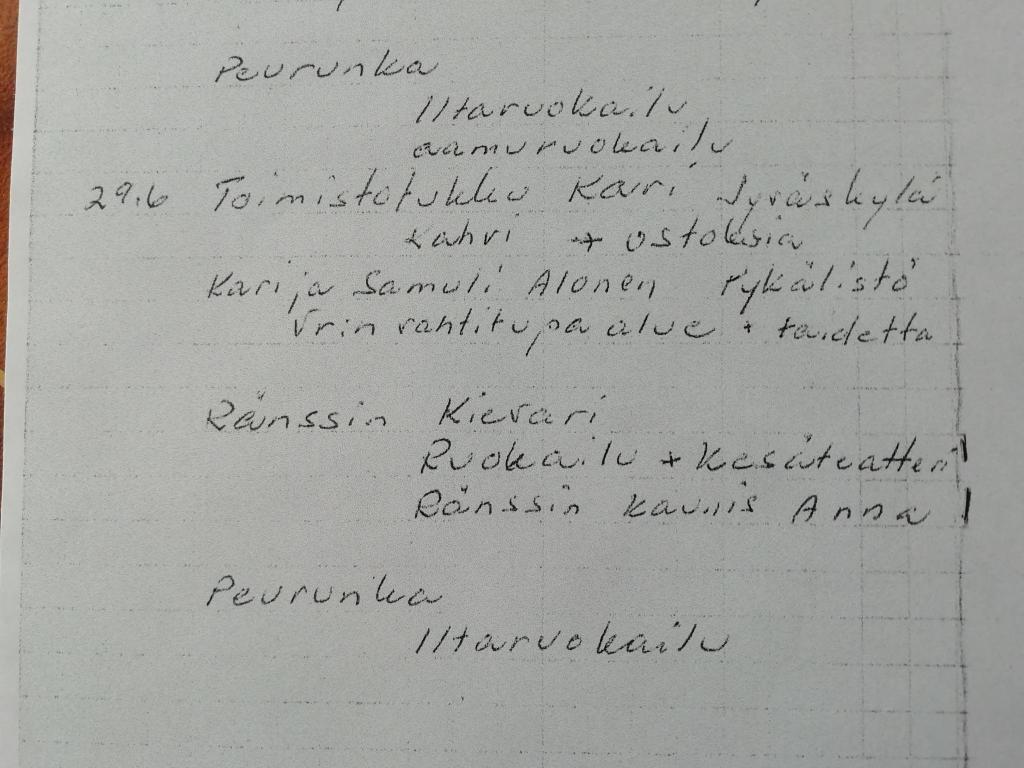 Peurunka
Iltaruokailu
aamuruokailu
29.6 Toimistotukku Kari Jyväskylä
Kahvi + ostoksia
Kari ja Samuli Alonen rykälistö
Vrin rahtitupa alue + taidetta
Ränssin Kievari
Ruokailu + Kesäteatteri
Ränssin kaunis Anna
Peurunka
Iltaruokailu